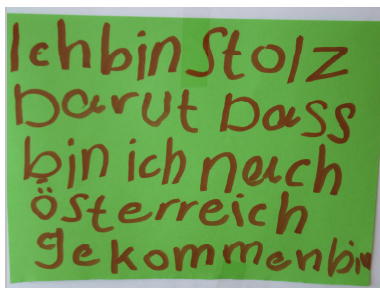 Ich bin Stolz
Darut Dass
bin ich nach
österreich
gekommen bin